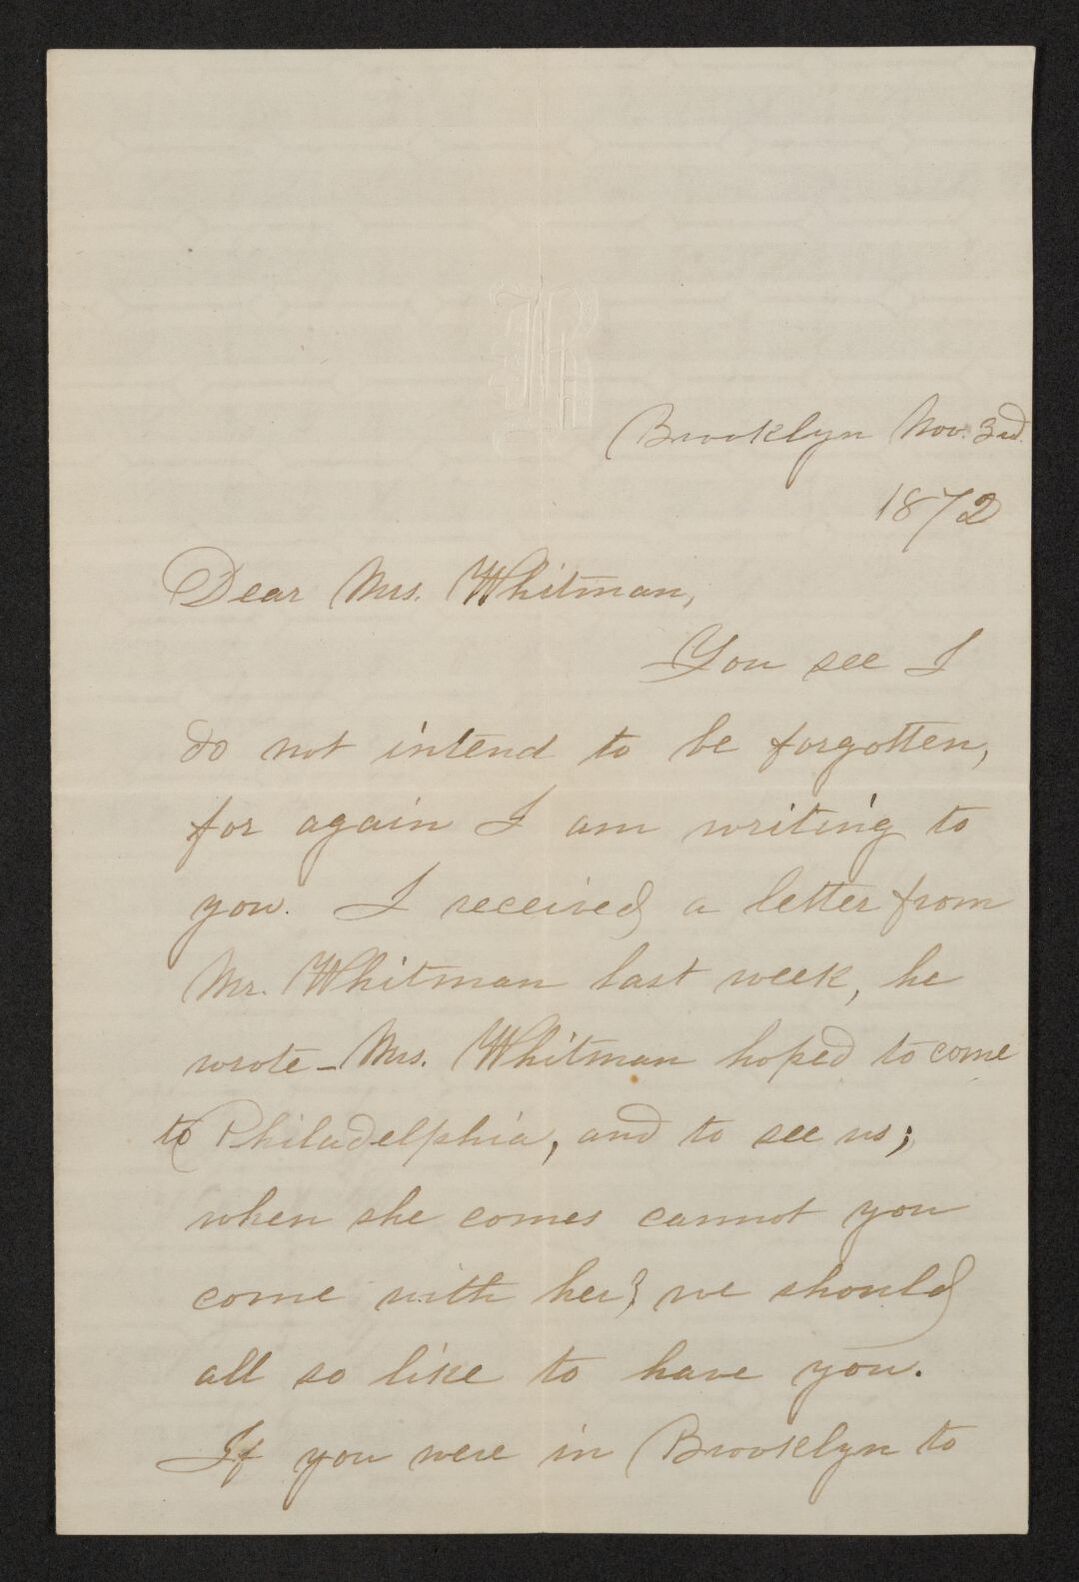 Brooklyn Nov. 3rd.
1872
Dear Mrs. Whitman,
You see I
do not intend to be forgotten,
for again I am writing to
you. I received a letter from
Mr. Whitman last week, he
wrote - Mrs. Whitman hoped to come
to Philadelphia, and to see us;
when she comes cannot you
come with her? we should
all so like to have you.
If you were in Brooklyn to